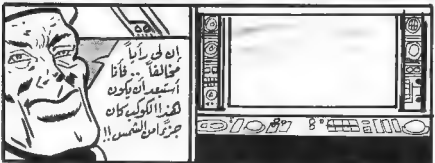 إن لى رأياً
مخالفاً .. فأنا
أستبعد أن يكون
هذا الكوكب كان
جزءًا من الشمس !!